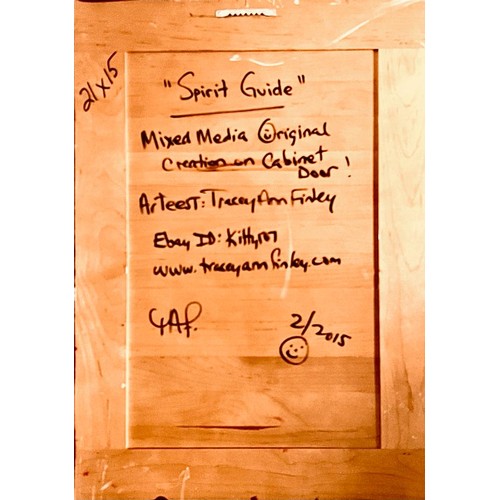 21x15
"Spirit Guide"
Mixed Media Original
Creation on Cabinet
Door!
Arteest: Tracey Ann Finley
Ebay ID: Kitty107
www.traceyannfinley.com
TAF.
2/2015